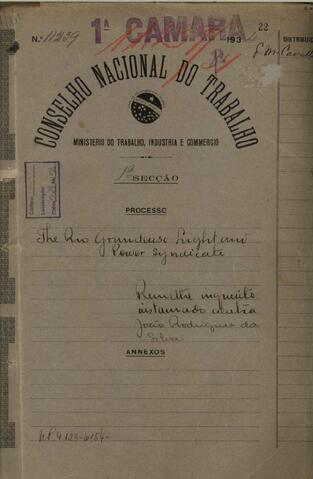 1ª CAMARA
22
Nº 11239
193
DISTRIBU
CONSELHO NACIONAL DO TRABALHO
MINISTERIO DO TRABALHO, INDUSTRIA E COMMERCIO
1ª SECÇÃO
PROCESSO
The Rio Grandense Light and
Power Syndicate
Remette inquerito
instaurado contra
João Rodrigues da
Silva
ANNEXOS